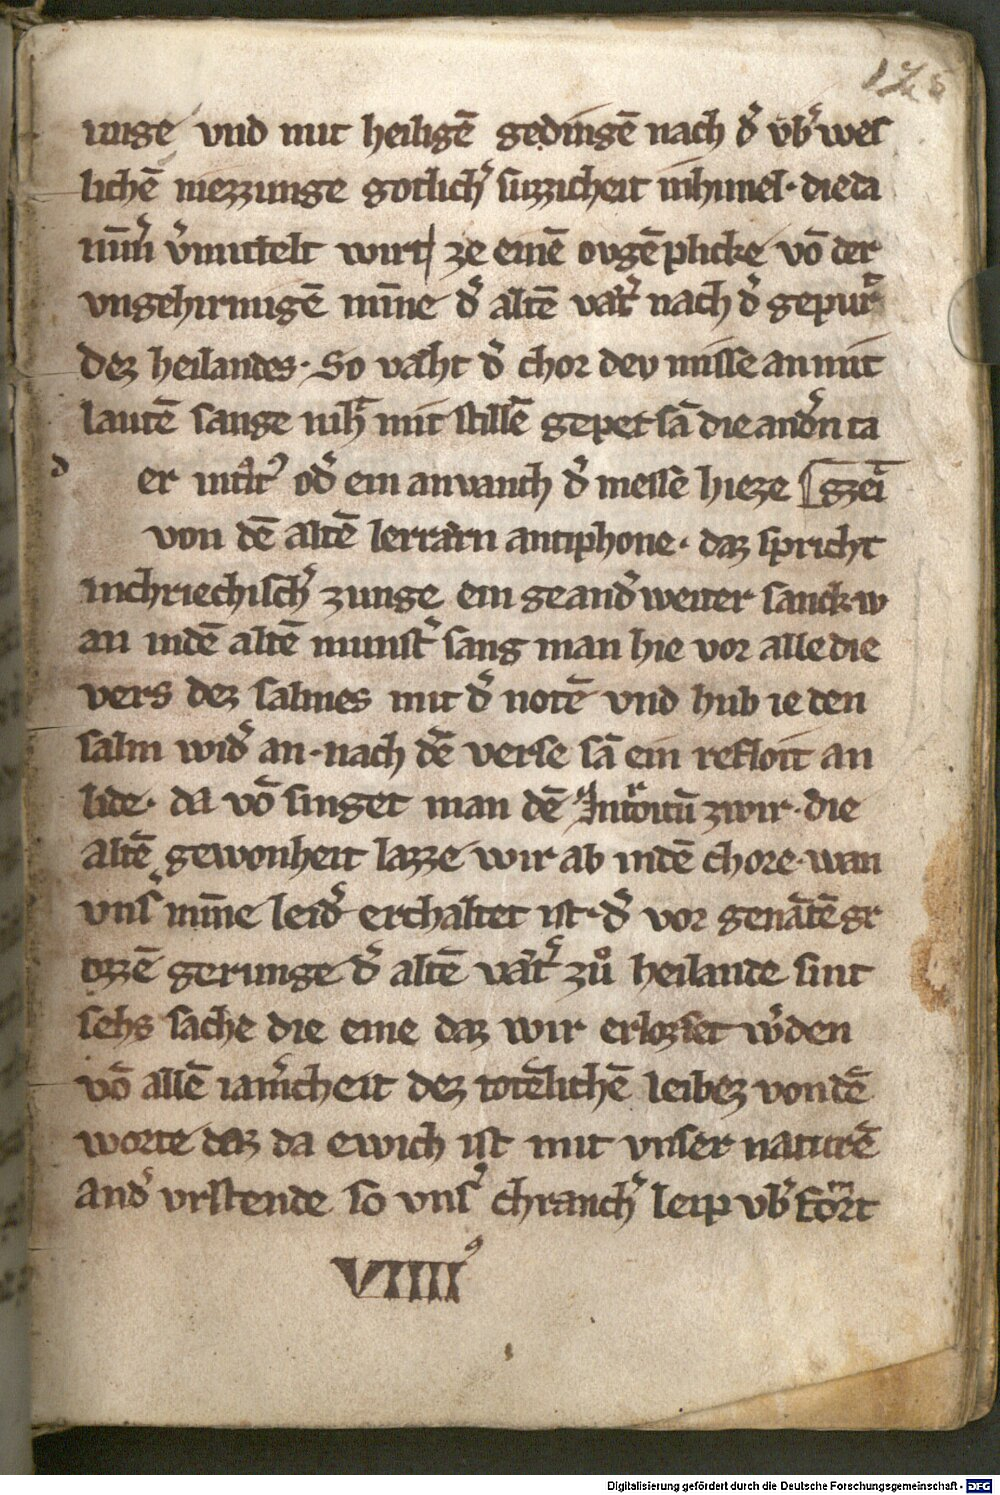 128
unge vnd mit heiligē gedingē nach d̓ vb̓wes
lichē niezzunge gotlich̓ suzzicheit inhimel· die da
nīm̄ v̓mittelt wirt ze einē ovgēplicke vō der
vngehirmigē mīne d̓ altē vat̓ nach d̓ gepurᵗ
dez heilandes· So vaht d̓ chor dev misse an mit
lautē sange niht mit stillē gepet sā die and̓n ta
d
er intͥt̓ od̓ ein anvanch d̓ messe hieze
von dē altē lerrarn antiphone· daz spricht
inchriechisch̓ zunge ein geand̓weiter sanck w
an indē altē munst̓ sang man hie vor alle die
vers dez salmes mit d̓ notē vnd hub ie den
salm wid̓ an· nach dē verse sā ein refloit an
lide· da vō singet man dē Introitū zwir· die
altē gewonheit lazze wir ab indē chore· wan
vns̓ mīne leid̓ erchaltet ist· d̓ vor genātē gr
ozzē gerunge d̓ altē vat̓ zů heilande sint
sehs sache die eine daz wir erlozset w̓den
vō allē iam̓cheit dez totēlichē leibez von dē
worte daz da ewich ist mit vnser naturē
and̓ vrstende so vns̓ chranch̓ leip vb̓formt
VIIII⁹
Digitalisierung gefördert durch die Deutsche Forschungsgemeinschaft - DFG